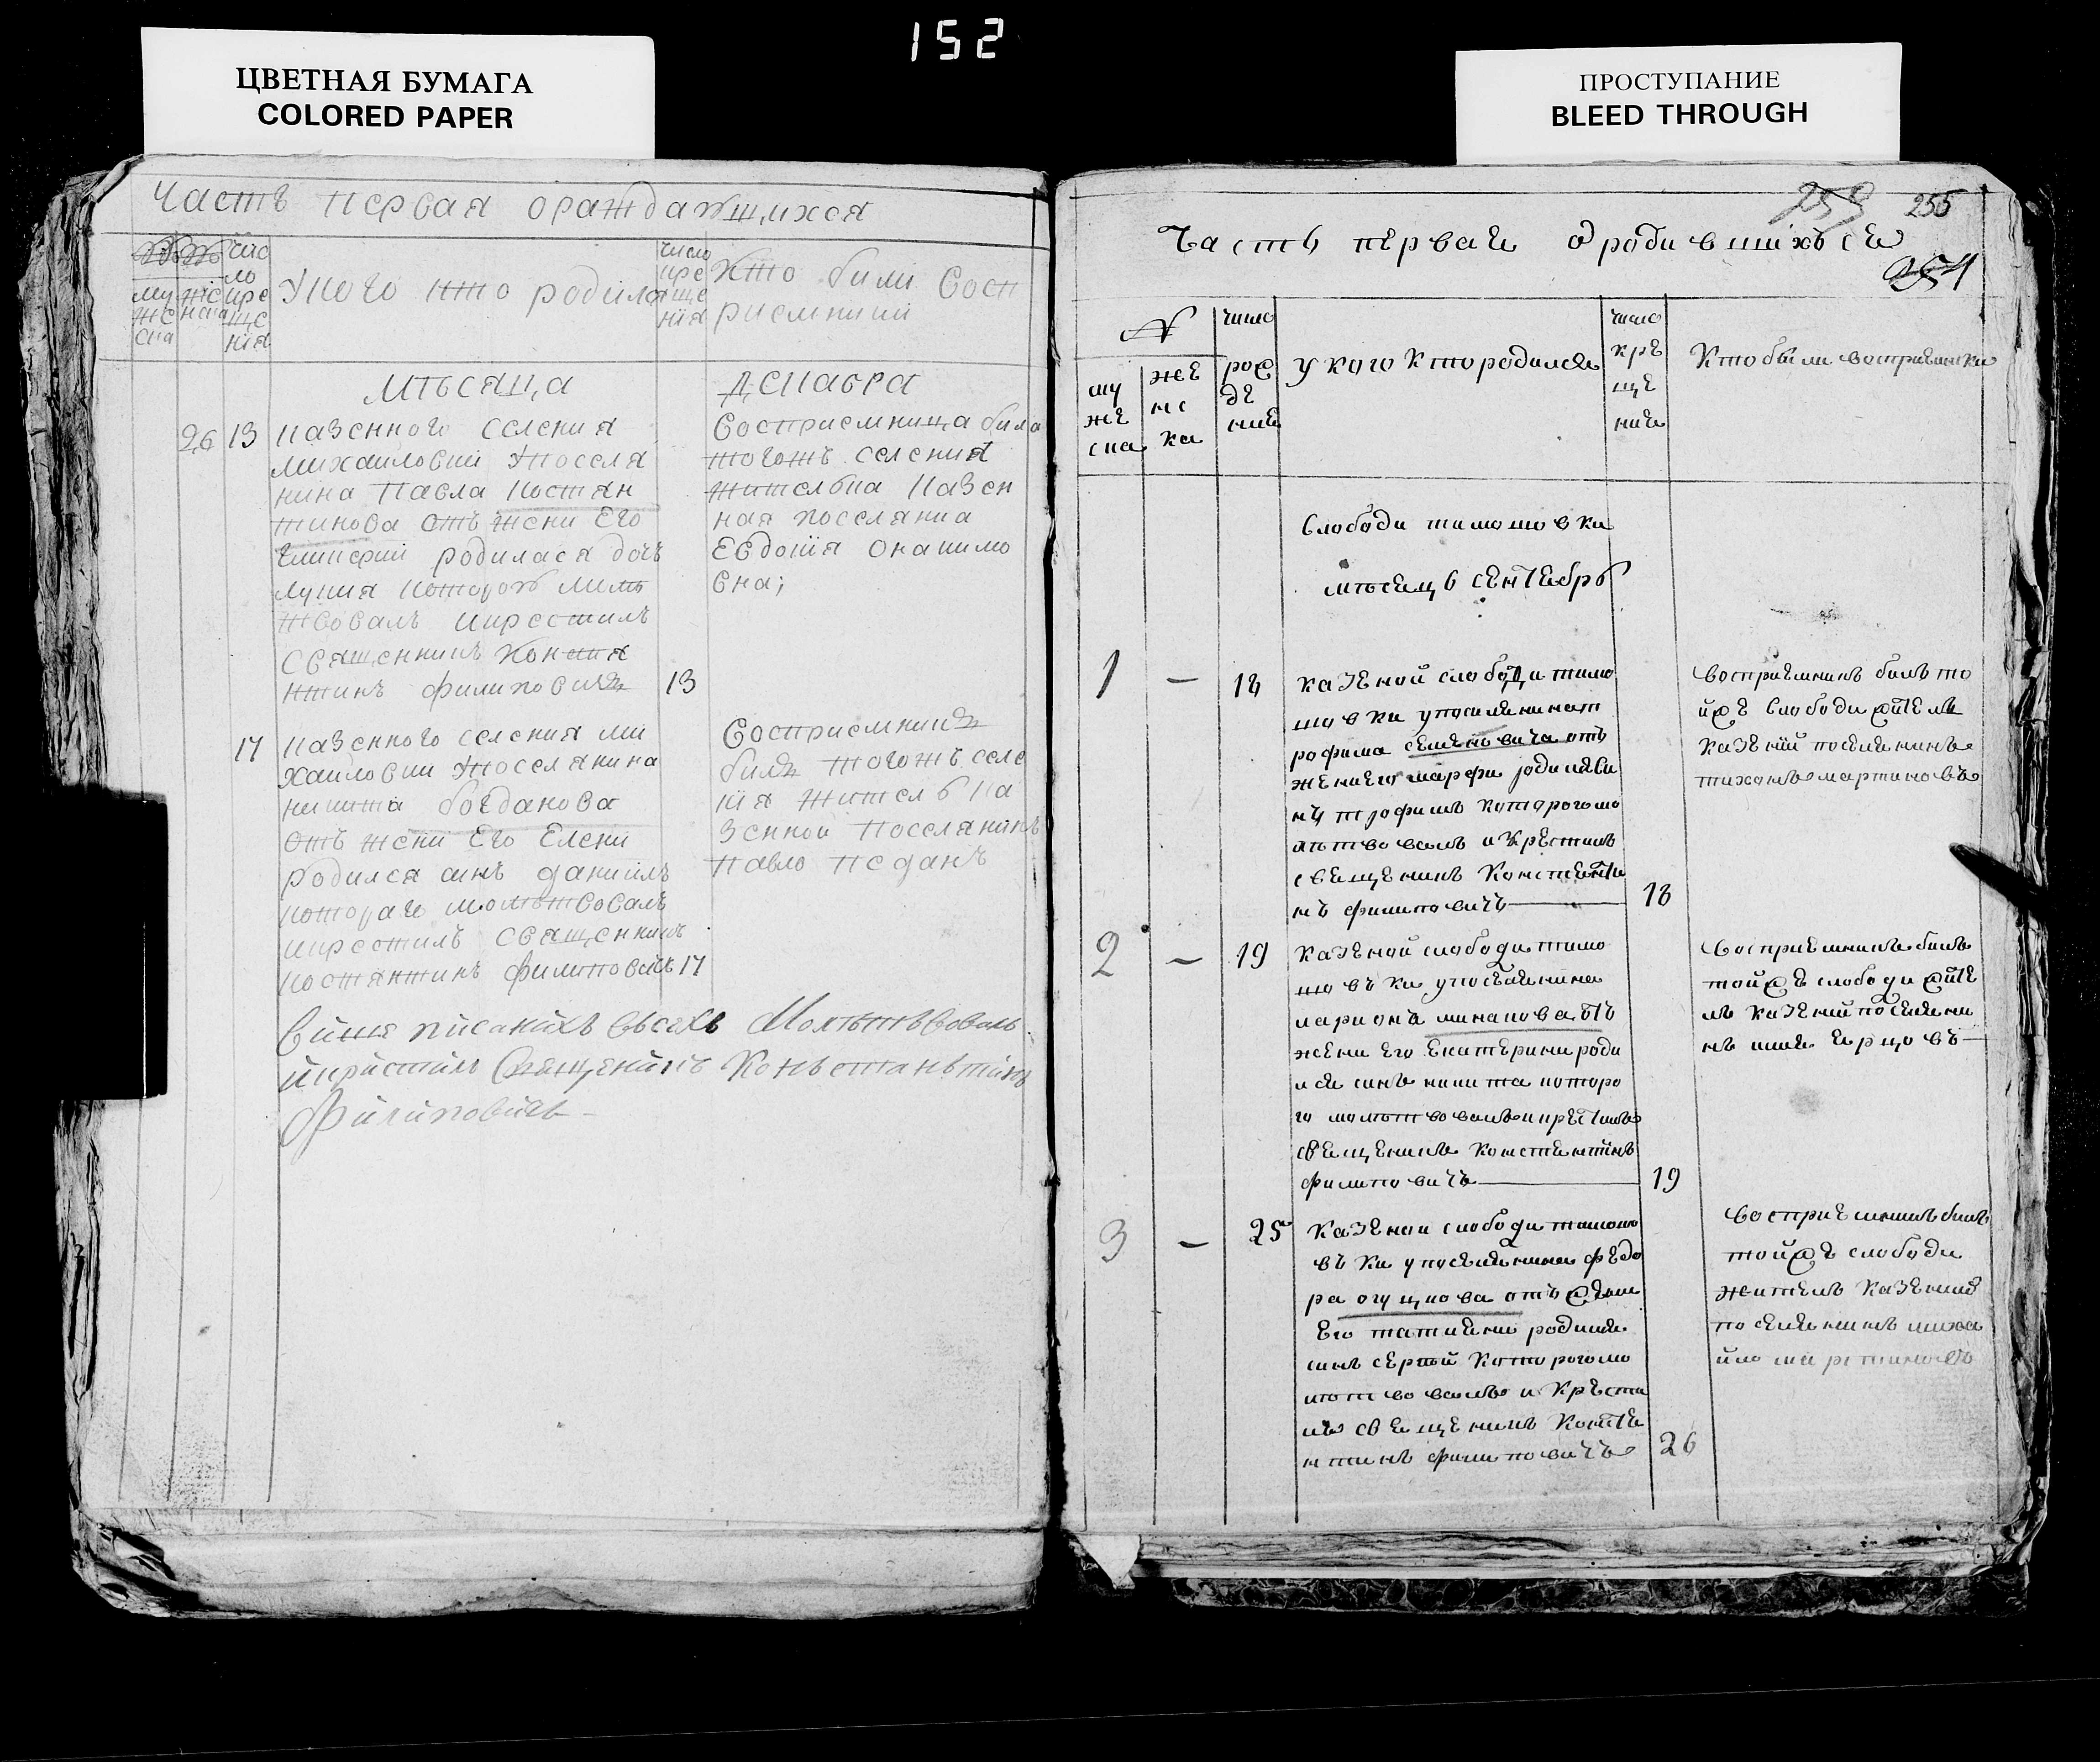 152
ЦВЕТНАЯ БУМАГА
COLORED PAPER
ПРОСТУПАНИЕ
BLEED THROUGH
Часть первая ораждающихся
му
же
ска
же
нска
чис
ло
кре
ще
нїя
Укого кто родился
число
кре
ще
нїя
Кто били восп
риемники
мѣсяца декабра
26 13 казенного селения
михаиловки упоселя
нина Павла Костян
тинова отъ жени Его
родилася дочь
ствовалъ икрестилъ
священникъ Конста
нтинъ филиповичъ 13
Восприемница била
тогожъ селения
жителька казен
ная поселянка
Евдокия
вна;
17 казенного селения ми
хаиловки упоселянина
никита богданова
отъ жени Его Елени
родился синъ даниилъ
котораго молитвовалъ
икрестилъ священникъ
костянтинъ филиповичъ 17
Восприемникъ
билъ тогожъ селе
нія житель ка
зенной поселянинъ
Павло
више писанихъ всехъ Молитьвовалъ
икристилъ Священикъ Коньстаньтинъ
Филиповичь
259 255
254
Часть первая ородившихься
№
му
же
ска
же
нс
ка
число
рож
де
ния
у кого кто родился
число
кре
ще
ния
Кто были восприемники
слободи тимошовки
мѣсецъ сентебръ
1 — 18 казеной слободи тимо
шовки упоселенина т
рофима семеновича отъ
жени его марфи родилься си
нъ трофимъ которого мо
литвовалъ и крестилъ
свещеникъ Констенти
нъ филиповичъ 18
восприемникъ билъ то
йже слободи жителъ
казений поселенинъ
тихонъ мартиновъ
2 — 19 казеной слободи тимо
шовъки упоселенина
лариона минакова отъ
жени его Екатерини роди
лся синъ никита которо
го молитвовалъ икрестилъ
свещеникъ Констентинъ
филиповичъ 19
восприемникъ билъ
тойже слободи жите
лъ казений поселени
нъ
3 — 25 казеной слободи тимошо
въки упоселенина федо
ра огуцкова отъ жени
Его татияни родился
синъ сергий которого мо
литвовалъ и крести
лъ свещеникъ Констен
нтинъ филиповичъ 26
восприемникъ билъ
тойже слободи
жителъ казений
поселенинъ миха
йло мартиновъ